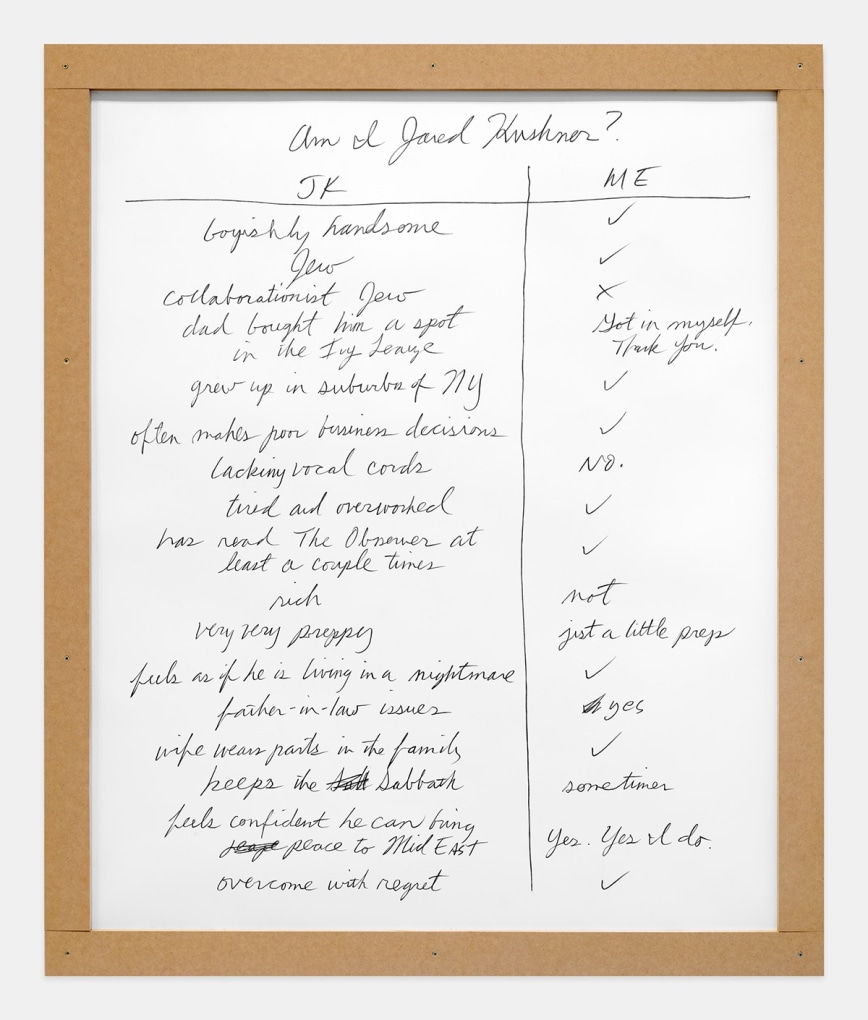 Am I Jared Kushner?
JK ME
boyishly handsome ✓
Jew ✓
collaborationist Jew ×
dad bought him a spot Got in myself.
in the Ivy League Thank you.
grew up in suburbs of NY ✓
often makes poor business decisions ✓
lacking vocal cords NO.
tired and overworked ✓
has read The Observer at ✓
least a couple times
rich not
very very preppy just a little prep
feels as if he is living in a nightmare ✓
father-in-law issues yes
wife wears pants in the family ✓
keeps the Sabbath sometimes
feels confident he can bring Yes. Yes I do.
peace to Mid EAST
overcome with regret ✓